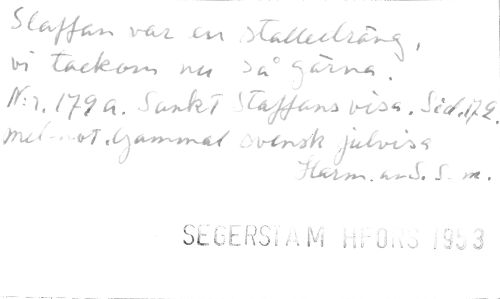 Staffan var en stalledräng,
vi tackom nu så gärna.
N:r. 179a. Sankt Staffans visa. Sid. 172.
mel-not. Gammal svensk julvisa
Harm. av S. S-m.
SEGERSTAM HFORS 1953